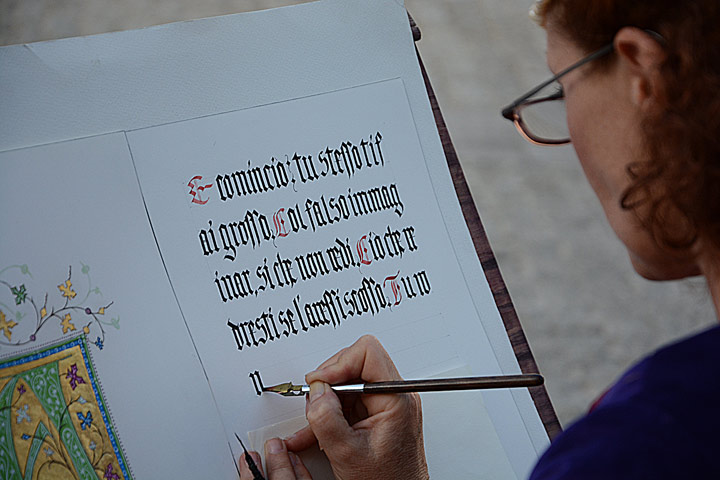 E comincio: tu stesso ti f
ai grosso. Col falso immag
inar, si che non vedi. Ciò che ve
dresti se l'avessi scosso. Tu no
n